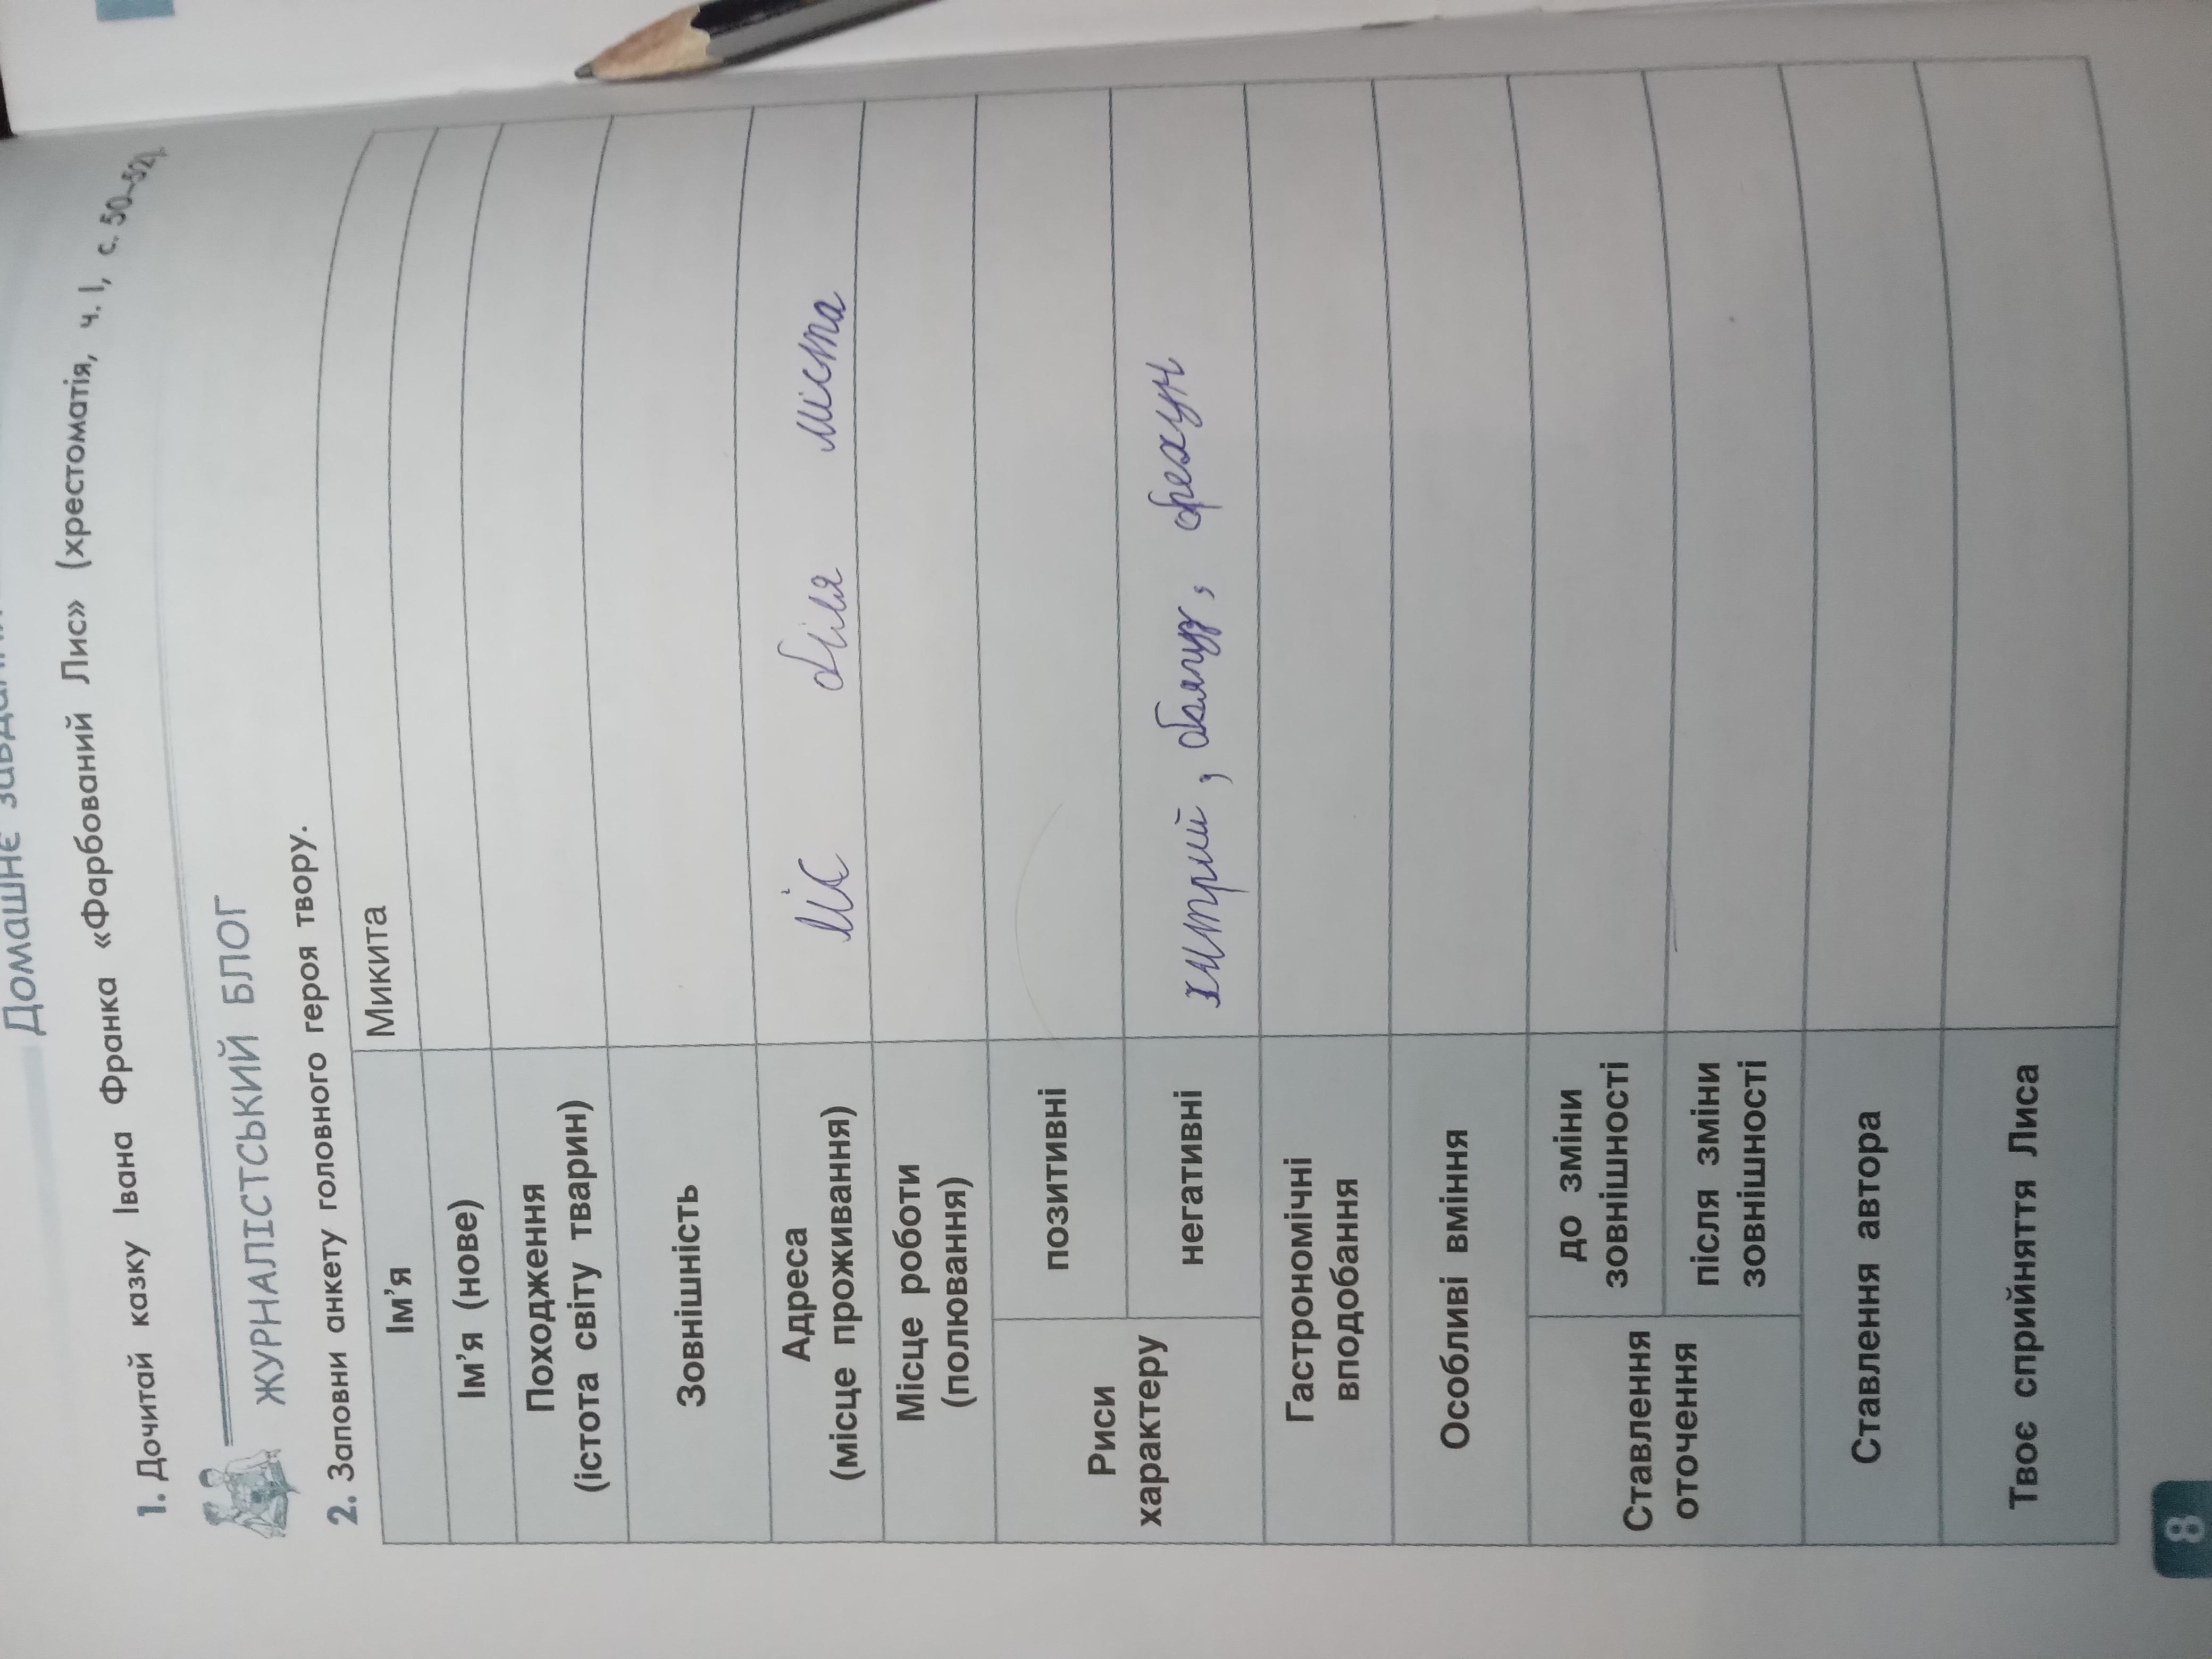 Домашнє завдання
1. Дочитай казку Івана Франка «Фарбований Лис» (хрестоматія, ч. I, с. 50–52).
ЖУРНАЛІСТСЬКИЙ БЛОГ
2. Заповни анкету головного героя твору.
Ім'я Микита
Ім'я (нове)
Походження
(істота світу тварин)
Зовнішність
Адреса
(місце проживання) ліс біля міста
Місце роботи
(полювання)
Риси
характеру
позитивні
негативні хитрий, брехун
Гастрономічні
вподобання
Особливі вміння
Ставлення
оточення
до зміни
зовнішності
після зміни
зовнішності
Ставлення автора
Твоє сприйняття Лиса
8